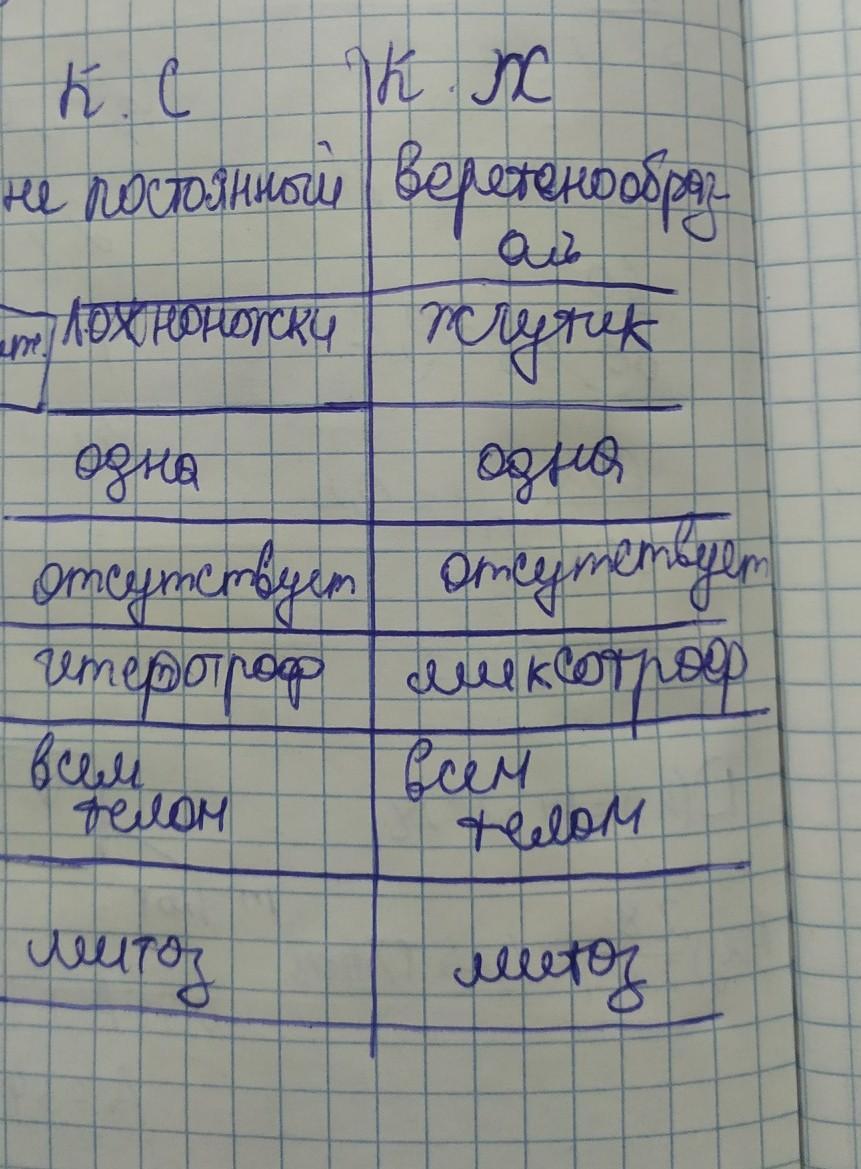 К. С К. Ж
не постоянный веретенообраз
ая
ат. ложноножки жгутик
одна одна
отсутствует отсутствует
гетеротроф миксотроф
всем всем
телом телом
митоз митоз